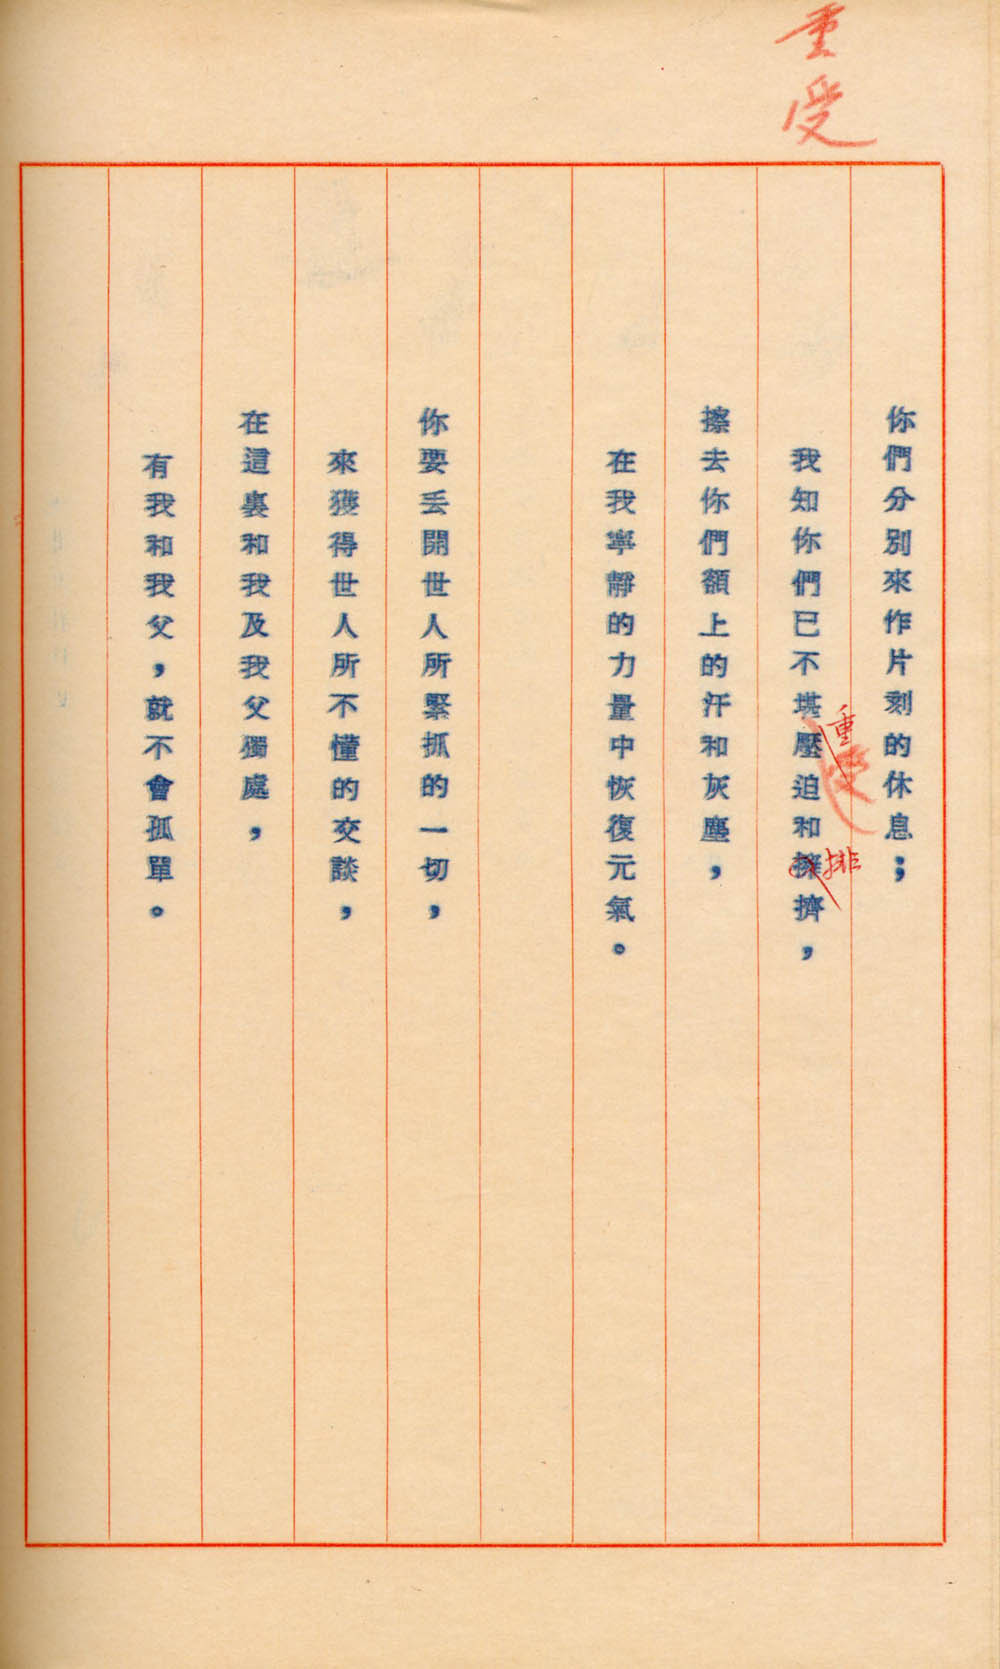 重受
你們分別來作片刻的休息；
我知你們已不堪壓迫和擁擠，
重
排
擦去你們額上的汗和灰塵，
在我寧靜的力量中恢復元氣。
你要丢開世人所緊抓的一切，
來獲得世人所不懂的交談，
在這裏和我及我父獨處，
有我和我父，就不會孤單。